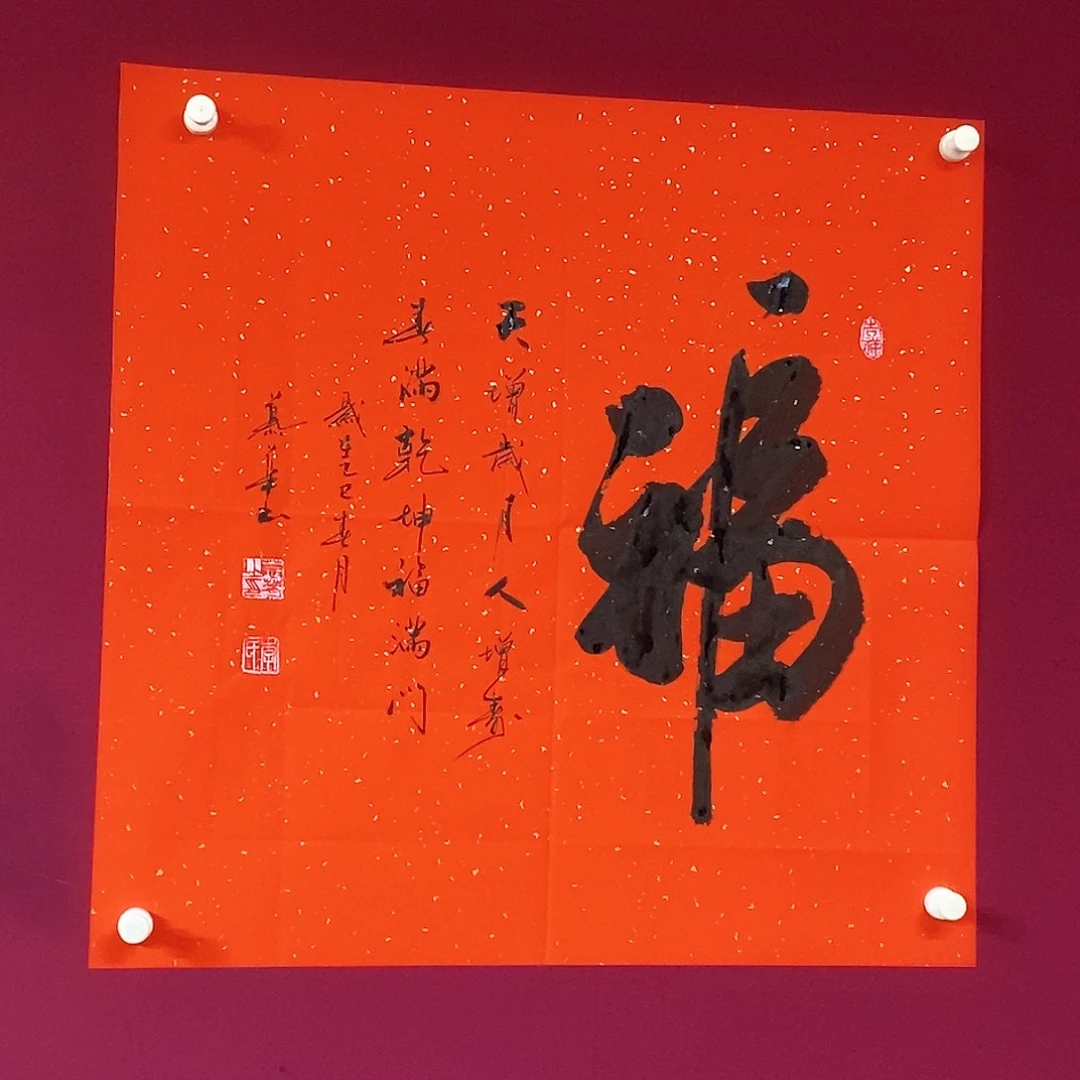 福
天增歲月人增壽
春满乾坤福满门
歲在乙巳春月